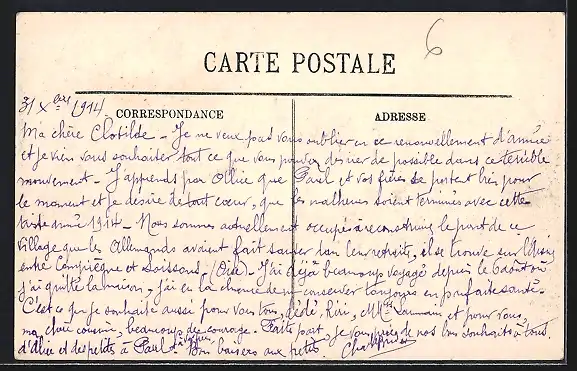 6
CARTE POSTALE
31 Xbre 1914
CORRESPONDANCE
ADRESSE
Ma chère Clotilde - Je ne veux pas vous oublier en ce renouvellement d'année
et je viens vous souhaiter tout ce que vous pouvez désirer de possible dans ce terrible
mouvement - J'apprends par que Paul et vos frères se portent bien pour
le moment et je désire de tout cœur, que les malheurs soient terminés avec cette
triste année 1914 - Nous sommes actuellement occupés à reconstruire le pont de ce
village que les Allemands avaient fait sauter dans leur retraite, il se trouve sur l'
entre Compiègne et Soissons (Oise) - J'ai déjà beaucoup voyagé depuis le 6 août où
j'ai quitté la maison, j'ai eu la chance de me conserver toujours en parfaite santé.
C'est ce que je souhaite aussi pour vous tous, Dédé, Riri, et pour vous,
ma chère cousine, beaucoup de courage. Faites part, je vous prie, de nos bons souhaits à tous.
d' et des petits à Paul Bons baisers aux petits